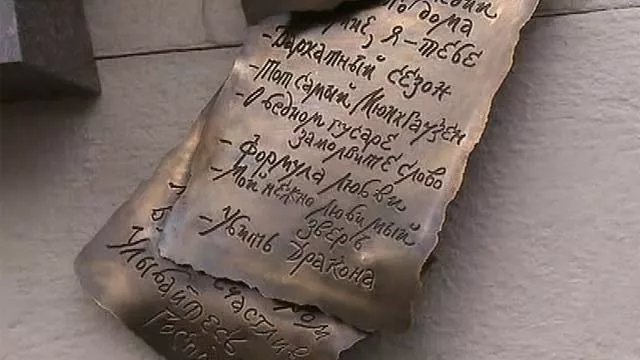 дома
я-тебе
-Бархатный сезон
-Тот самый Мюнхгаузен
-О бедном гусаре
замолвите слово
-Формула любви
-Мой нежно любимый
зверь
-Убить дракона
счастливо
Улыбайтесь